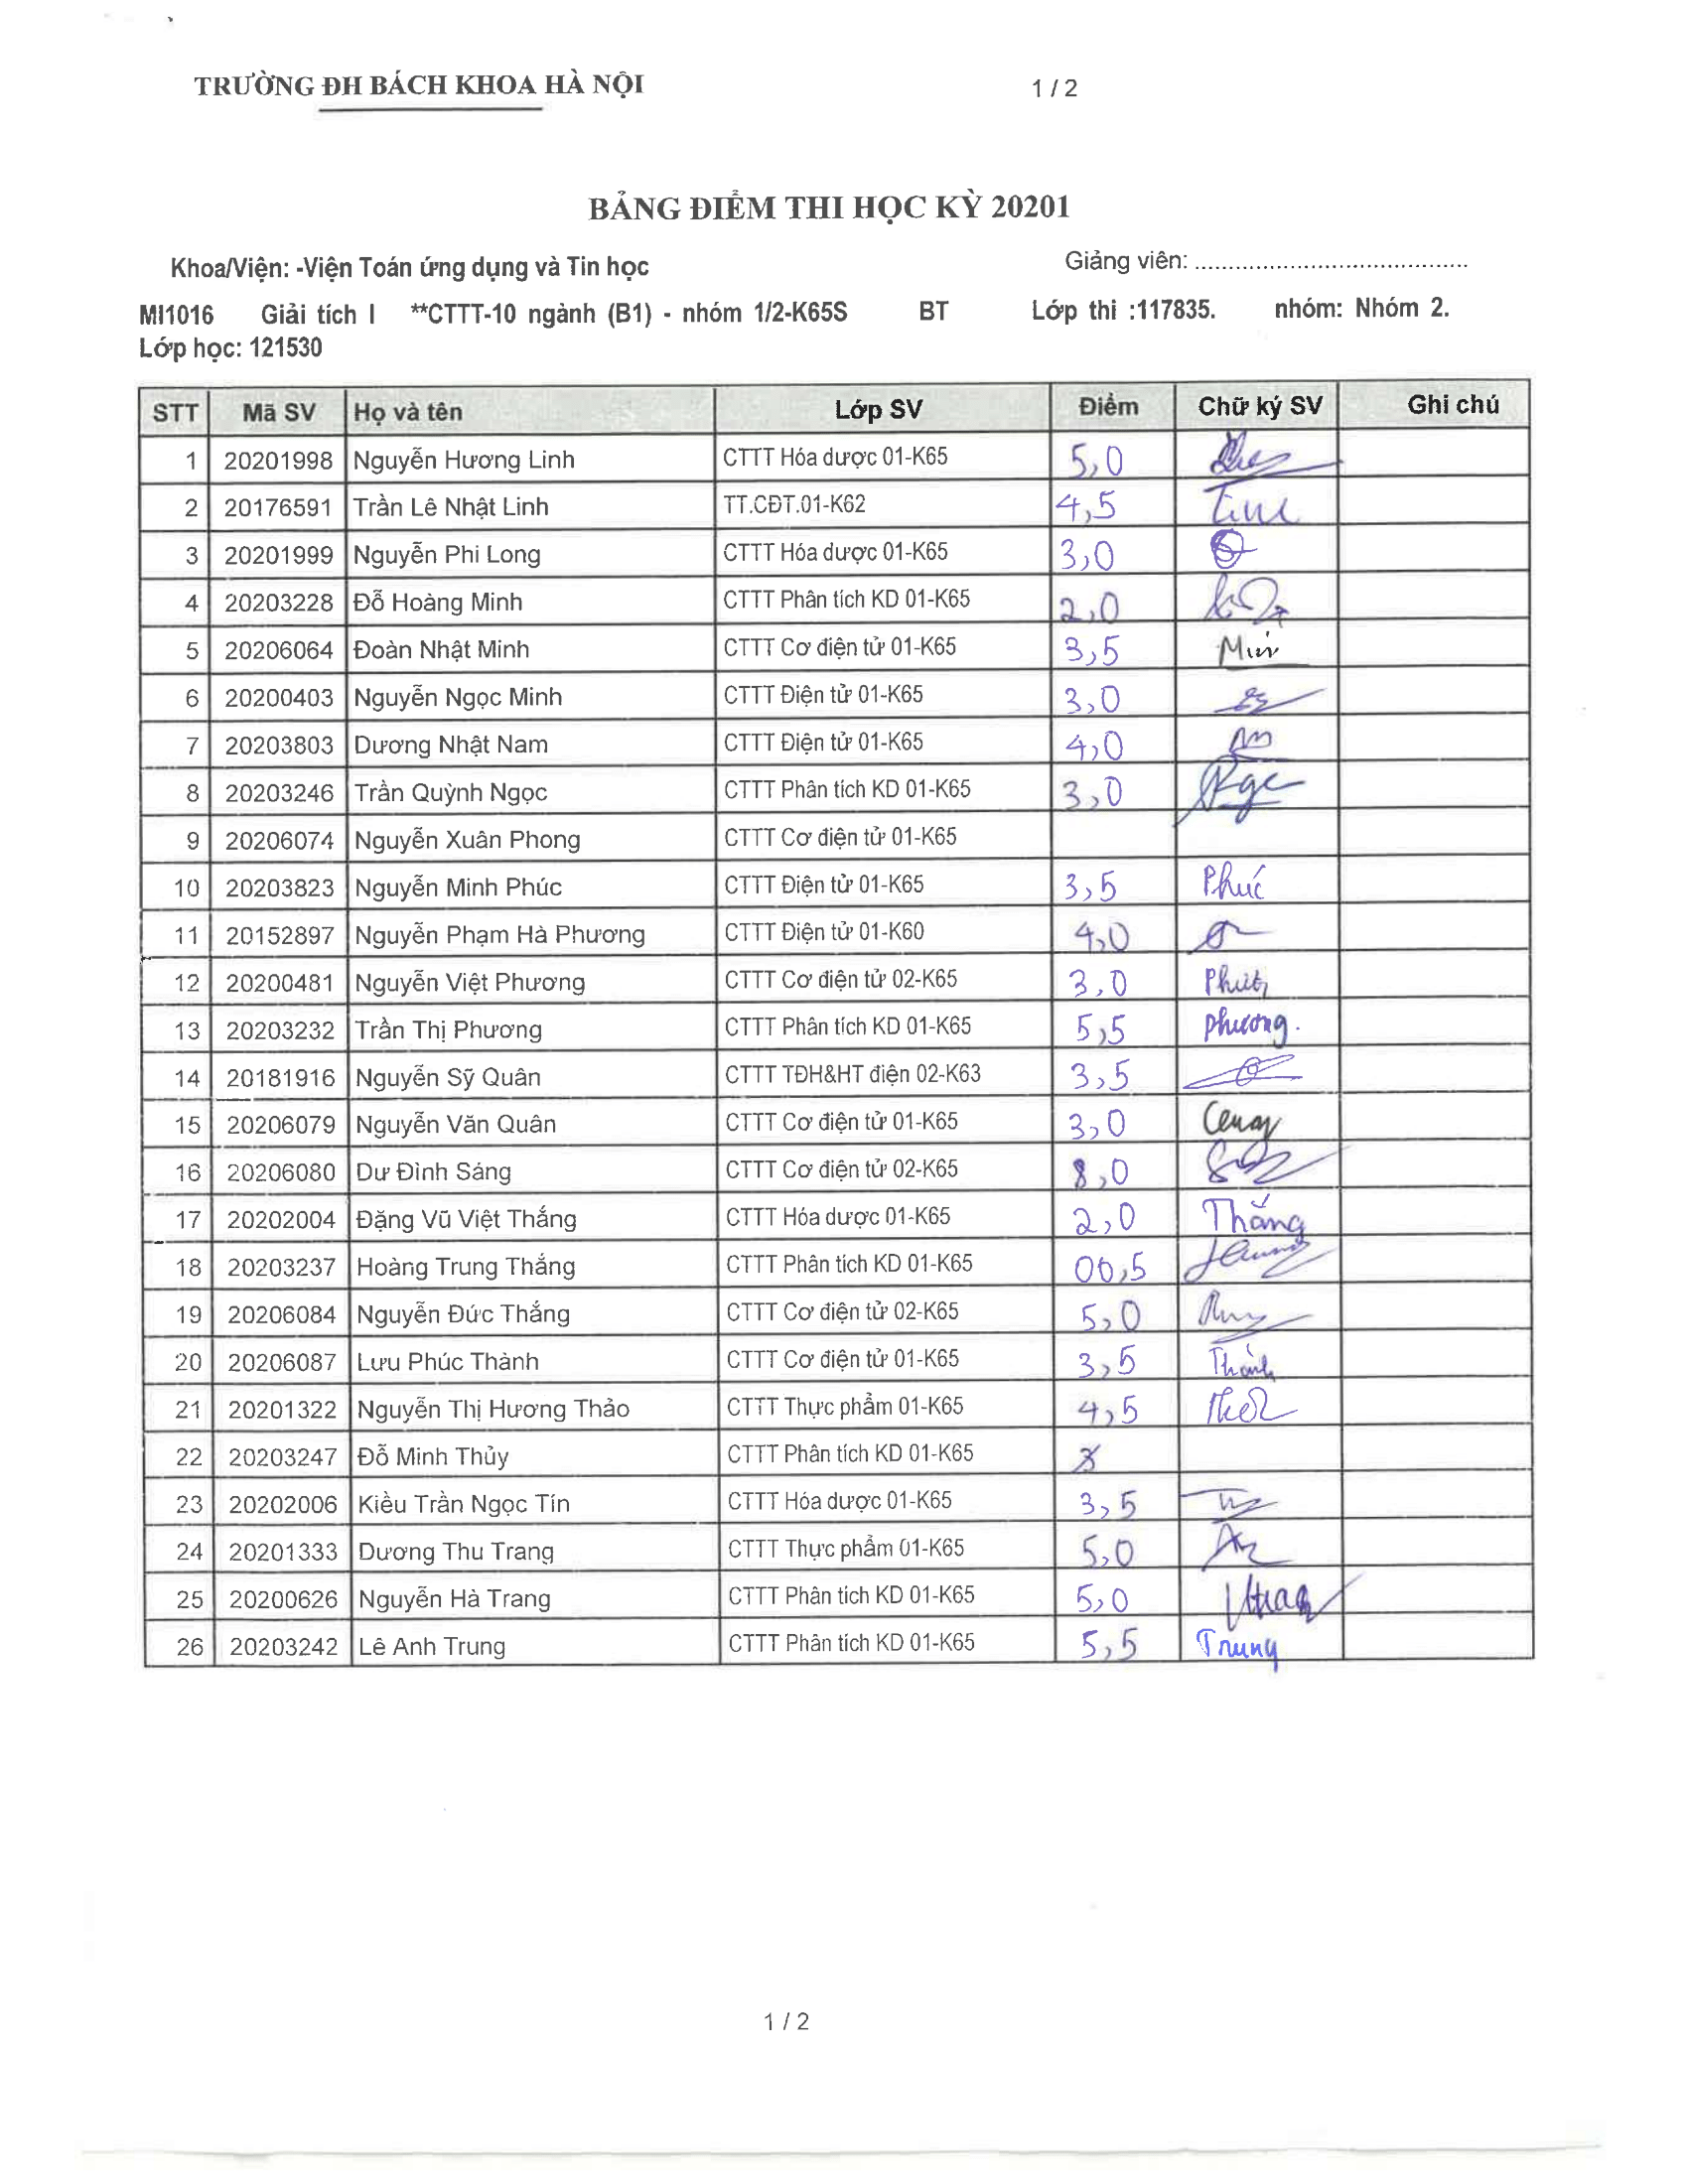 TRƯỜNG ĐH BÁCH KHOA HÀ NỘI 1 / 2
BẢNG ĐIỂM THI HỌC KỲ 20201
Khoa/Viện: -Viện Toán ứng dụng và Tin học Giảng viên: ........................................
MI1016 Giải tích I **CTTT-10 ngành (B1) - nhóm 1/2-K65S BT Lớp thi :117835. nhóm: Nhóm 2.
Lớp học: 121530
STT Mã SV Họ và tên Lớp SV Điểm Chữ ký SV Ghi chú
1 20201998 Nguyễn Hương Linh CTTT Hóa dược 01-K65 5,0
2 20176591 Trần Lê Nhật Linh TT.CĐT.01-K62 4,5
3 20201999 Nguyễn Phi Long CTTT Hóa dược 01-K65 3,0
4 20203228 Đỗ Hoàng Minh CTTT Phân tích KD 01-K65 2,0
5 20206064 Đoàn Nhật Minh CTTT Cơ điện tử 01-K65 3,5
6 20200403 Nguyễn Ngọc Minh CTTT Điện tử 01-K65 3,0
7 20203803 Dương Nhật Nam CTTT Điện tử 01-K65 4,0
8 20203246 Trần Quỳnh Ngọc CTTT Phân tích KD 01-K65 3,0
9 20206074 Nguyễn Xuân Phong CTTT Cơ điện tử 01-K65
10 20203823 Nguyễn Minh Phúc CTTT Điện tử 01-K65 3,5 Phúc
11 20152897 Nguyễn Phạm Hà Phương CTTT Điện tử 01-K60 4,0
12 20200481 Nguyễn Việt Phương CTTT Cơ điện tử 02-K65 3,0
13 20203232 Trần Thị Phương CTTT Phân tích KD 01-K65 5,5 phương.
14 20181916 Nguyễn Sỹ Quân CTTT TĐH&HT điện 02-K63 3,5
15 20206079 Nguyễn Văn Quân CTTT Cơ điện tử 01-K65 3,0
16 20206080 Dư Đình Sáng CTTT Cơ điện tử 02-K65 8,0
17 20202004 Đặng Vũ Việt Thắng CTTT Hóa dược 01-K65 2,0 Thắng
18 20203237 Hoàng Trung Thắng CTTT Phân tích KD 01-K65 00,5
19 20206084 Nguyễn Đức Thắng CTTT Cơ điện tử 02-K65 5,0
20 20206087 Lưu Phúc Thành CTTT Cơ điện tử 01-K65 3,5 Thành
21 20201322 Nguyễn Thị Hương Thảo CTTT Thực phẩm 01-K65 4,5
22 20203247 Đỗ Minh Thủy CTTT Phân tích KD 01-K65
23 20202006 Kiều Trần Ngọc Tín CTTT Hóa dược 01-K65 3,5
24 20201333 Dương Thu Trang CTTT Thực phẩm 01-K65 5,0
25 20200626 Nguyễn Hà Trang CTTT Phân tích KD 01-K65 5,0
26 20203242 Lê Anh Trung CTTT Phân tích KD 01-K65 5,5 Trung
1 / 2